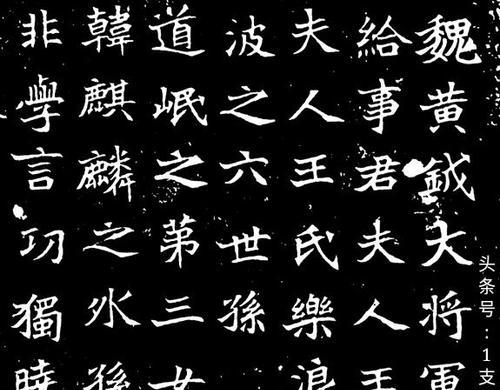 魏黄鉞大將軍
給事君夫人王
夫人王氏樂浪
波之六世孫
道岷之第三女
韓麒麟之外孫
非學言功獨曉
头条号：1支